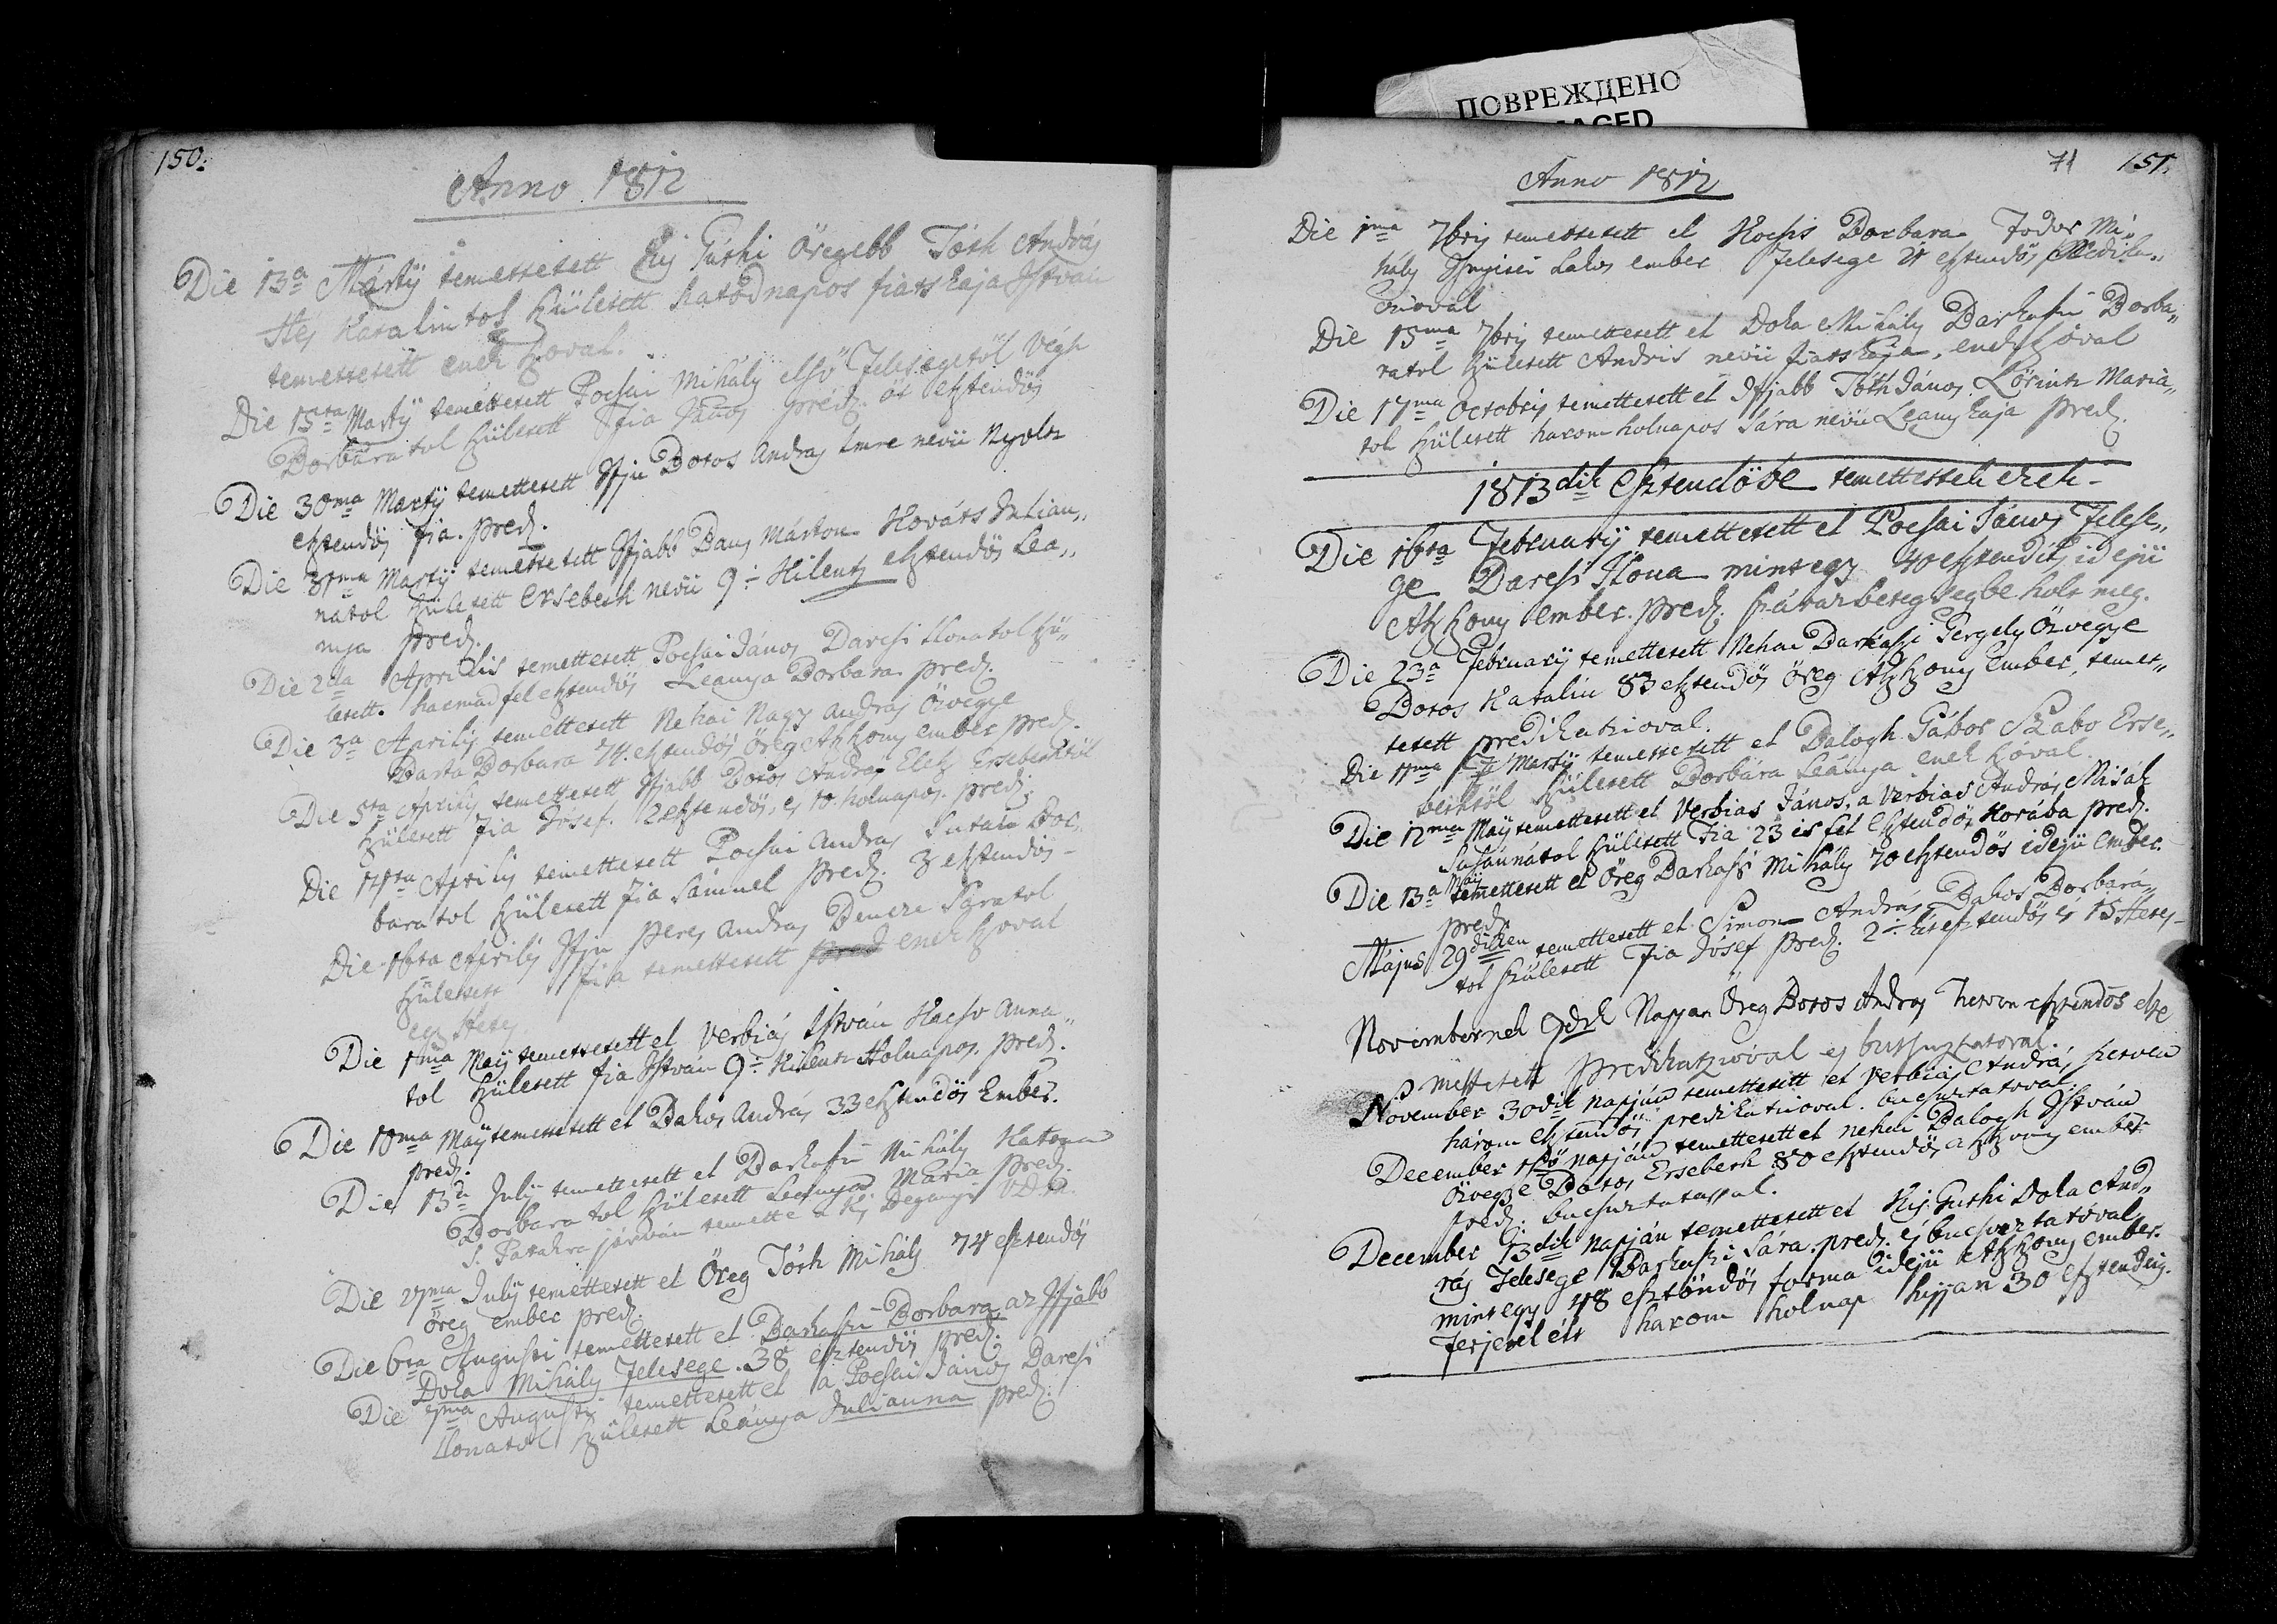 ПОВРЕЖДЕНО
150.
Anno 1812
Die 13a Martÿ temettetett Kis Guthi Öregebb Tóth András
Katalintol születtett hatodnapos fiatskaja István
temettetett enek szoval.
Die 15ta Martÿ temettetett Pocsai Mihály elsö Felesegetöl Végh
Borbáratol születtett fia János pred. öt esztendös
Die 30ma Martÿ temettetett Ifju Boros András Imre nevü Nyoltz
esztendös fia. pred.
Die 31ma Martÿ temettetett Ifjabb Márton Kováts Julian„
natol születtett Ersebeth nevü 9. Kilentz esztendös Lea„
nya pred.
Die 2da Aprilis temettetett Pocsai János Darcsi Ilonatol szü„
letett. harmadfel esztendös Leanya Borbara pred.
Die 3a Aprilis temettetett Nehai Nagy András Özvegye
Barta Borbara 74. esztendös öreg Aszszony ember pred.
Die 5ta Aprilis temettetett Ifjabb Boros András Elek Ersebethtöl
születtett fia Josef. 2 esztendös, es 10. holnapos. pred.
Die 14ta Aprilis temettetett Pocsai András Bor„
baratol születtett fia Sámuel pred. 3 esztendös
Die 16ta Aprilis Ifju Peres András Bencze Saratol
születtett fia temettetett pred enek szoval
egy Hetes
Die 1ma Maÿ temettetett el Verbiás István Anna„
tol születtett fia István 9. Kilentz Holnapos. pred.
Die 10ma Maÿ temettetett el Bakos András 33 esztendös Ember.
pred.
Die 13a Julÿ temettetett el Barkaszi Mihály Katona
Borbaratol születtett Leanya Maria pred.
S. Patakra járván temette a Kis
Die 27ma Julÿ temettetett el Öreg Tóth Mihály 74 esztendös
öreg ember pred.
Die 6ta Augusti temettetett el Barkaszi Borbara az Ifjabb
Doka Mihály Felesege. 38 esztendös pred.
Die 7ma Augusti temettetett el a Pocsai János Darcsi
Ilonatol születtett Leánya Julianna pred.
71 151.
Anno 1812
Die 1ma 7bris temettetett el Kocsis Borbara Fodor Mi„
hály Lakos ember Felesege esztendös Predika„
tzioval
Die 15ma 7bris temettetett el Doka Mihály Barkaszi Borba„
ratol születtett András nevü fiatskaja, enek szoval
Die 17ma Octobris temettetett el Ifjabb Tóth János Lörintz Maria„
tol születtett harom holnapos Sára nevü Leanykaja pred.
1813dik Esztendöbe temettettek ezek
Die 16ta Februarÿ temettetett el Pocsai János Felese„
ge Darcsi Ilona mintegy 40 esztendös idejü
Aszszony ember. pred. szárazbetegsegbe holt meg.
Die 23a Februarÿ temettetett Nehai Barkaszi Gergely Özvegye
Boros Katalin 83 esztendös Öreg Aszszony Ember, temet„
tetett predikatzioval.
Die 11ma Martÿ temettetett el Balogh Gábor Szabo Erse„
bethtöl születtett Borbára Leánya enek szóval
Die 12ma Maÿ temettetett el Verbias János, a Verbias András Misák
Susánnátol születtett Fia 23 és fel esztendös Korába pred.
Die 13a Maÿ temettetett el Öreg Barkaszi Mihály 70 esztendös idejü Ember.
pred.
Május 29dikén temettetett el Simon András Bakos Borbará„
tol születtett Fia Josef pred. 2. két esztendös és 15 Hetes
Novembernek 9dik Napjan Öreg Boros András hetven esztendös elte
mettetett predikatzióval es butsuztatoval.
November 30dik napján temettetett el Verbias András hetven
három esztendös predikatzioval. bucsuztatoval.
December 1sö napján temettetett el nehai Balogh István
özvegye Boros Ersebeth 80 esztendös aszszony ember
pred. bucsuztatassal.
December 13dik napján temettetett el Kis Guthi Doka And„
rás Felesege Barkaszi Sára. pred. és bucsuztatóval
mintegy 48 esztöndös forma idejü Aszszony ember.
Ferjevel élt harom holnap hijjan 30 esztendeig.